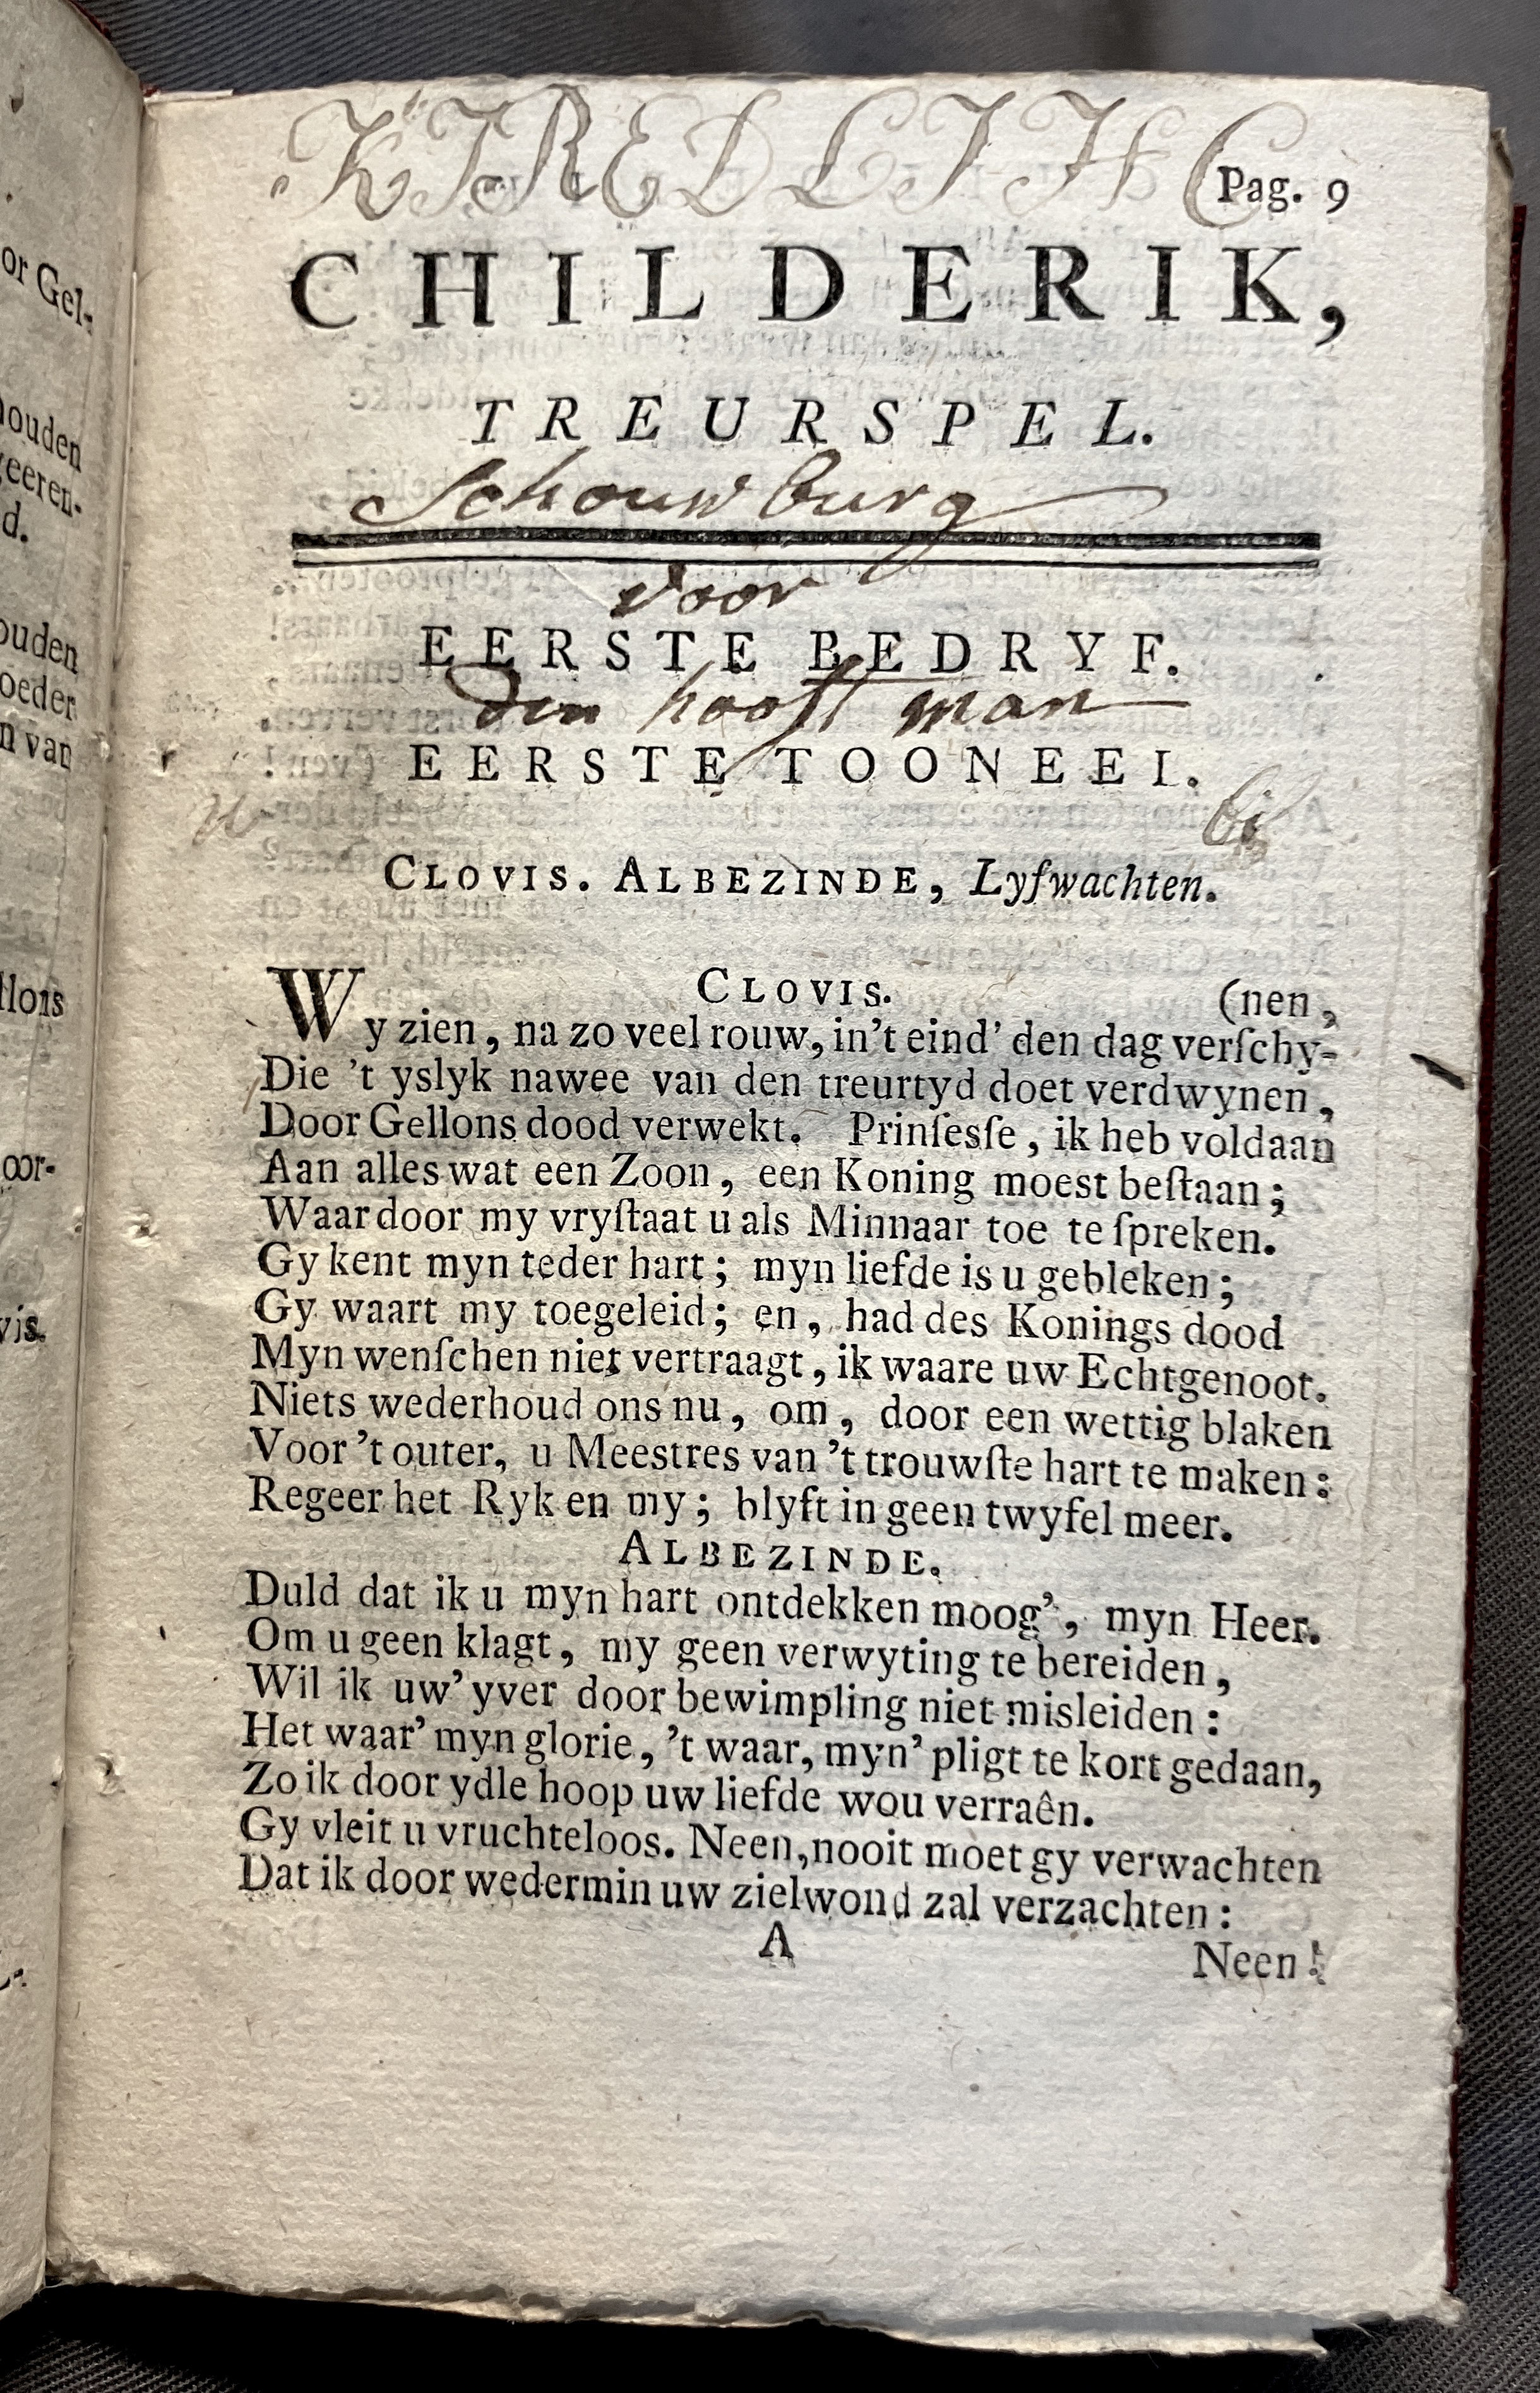 KIREDLIHC
Pag. 9
CHILDERIK,
TREURSPEL.
Schouwburg
voor
EERSTE BEDRYF.
den hooft man
EERSTE TOONEEL.
bi
CLOVIS. ALBEZINDE, Lyfwachten.
CLOVIS. (nen,
Wy zien, na zo veel rouw, in't eind' den dag verſchy-
Die 't yslyk nawee van den treurtyd doet verdwynen,
Door Gellons dood verwekt. Prinſesſe, ik heb voldaan
Aan alles wat een Zoon, een Koning moest beſtaan;
Waardoor my vryſtaat u als Minnaar toe te ſpreken.
Gy kent myn teder hart; myn liefde is u gebleken;
Gy waart my toegeleid; en, had des Konings dood
Myn wenſchen niet vertraagt, ik waare uw Echtgenoot.
Niets wederhoud ons nu, om, door een wettig blaken
Voor 't outer, u Meestres van 't trouwſte hart te maken:
Regeer het Ryk en my; blyft in geen twyfel meer.
ALBEZINDE.
Duld dat ik u myn hart ontdekken moog', myn Heer.
Om u geen klagt, my geen verwyting te bereiden,
Wil ik uw' yver door bewimpling niet misleiden:
Het waar' myn glorie, 't waar, myn' pligt te kort gedaan,
Zo ik door ydle hoop uw liefde wou verraên.
Gy vleit u vruchteloos. Neen, nooit moet gy verwachten
Dat ik door wedermin uw zielwond zal verzachten:
A
Neen!
or Gel-
houden
geeren-
d.
ouden
oeder
n van
llons
oor-
vis.